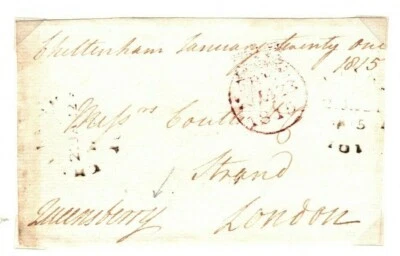 Cheltenham January twenty one
1815
Mess^rs Coutts
Strand
Queensberry London